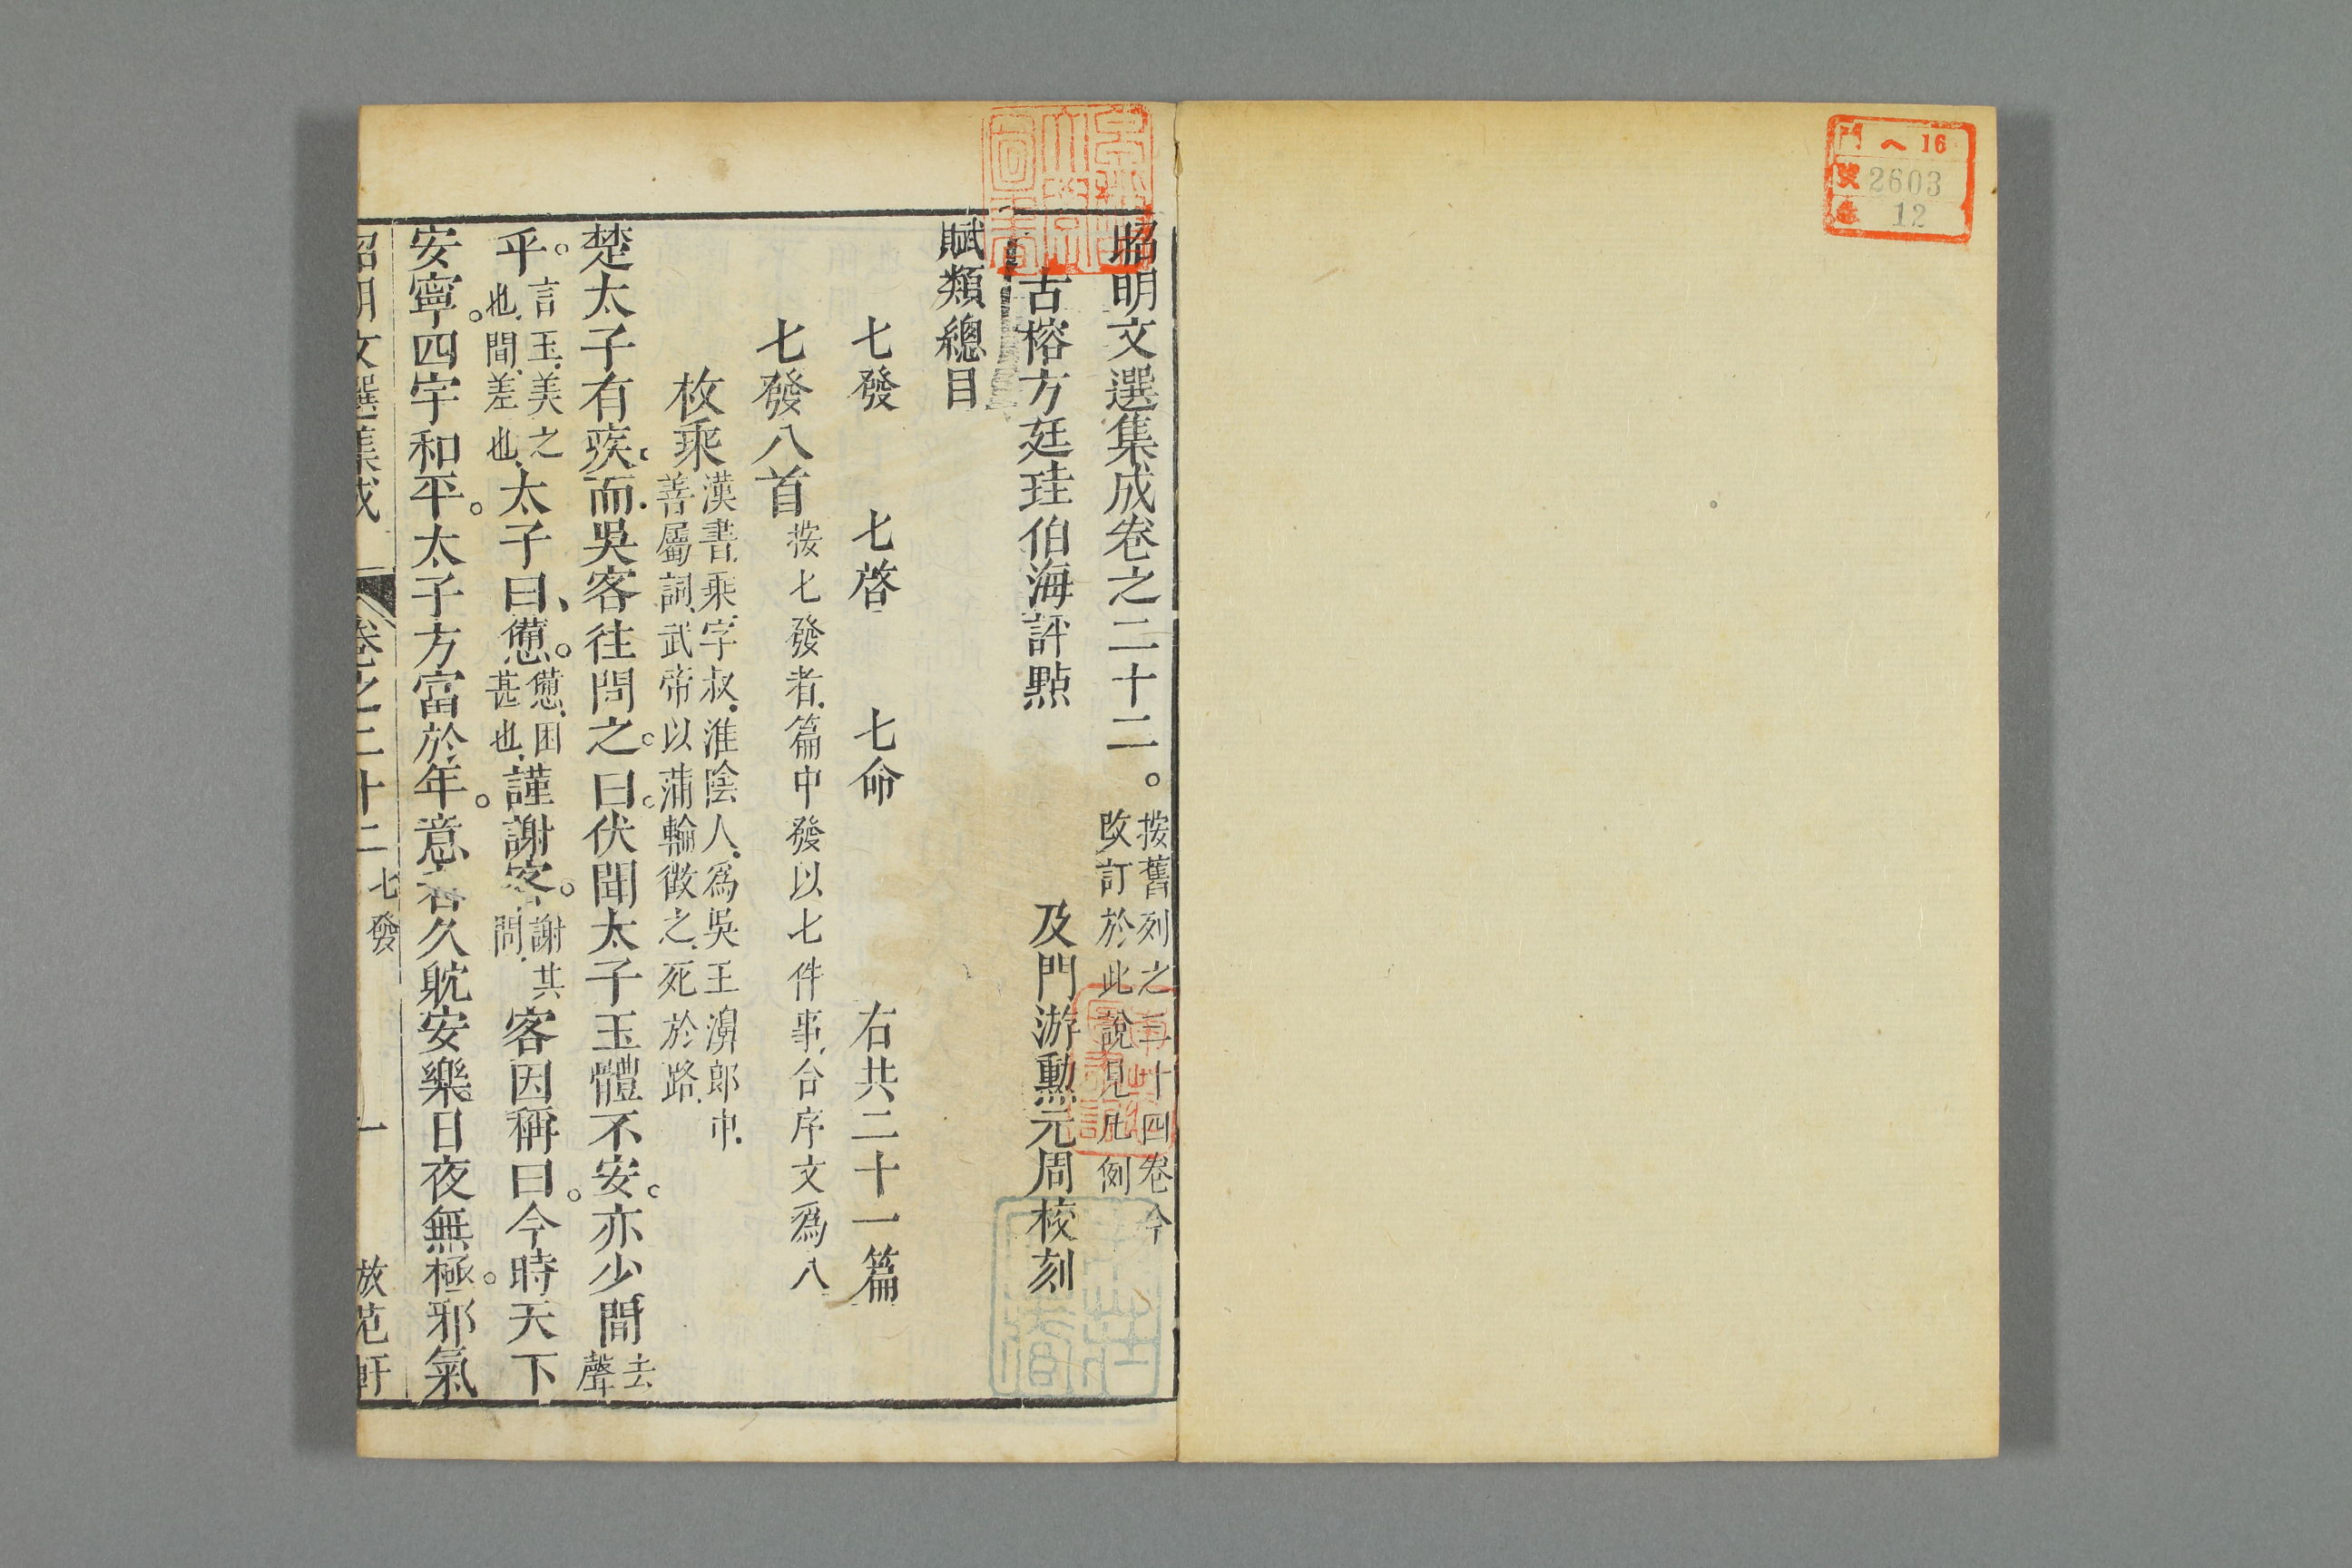 門 ヘ 16
號 2603
卷 12
昭明文選集成卷之二十二。按舊列之三十四卷今改訂於此說見凡例
古榕方廷珪伯海評點 及門游勲元周校刻
賦類總目
七發 七啓 七命 右共二十一篇
七發八首 按七發者篇中發以七件事合序文爲八
枚乘 漢書乘字叔淮陰人爲吳王濞郎中善屬詞武帝以蒲輪徵之死於路
楚太子有疾而吳客往問之。曰。伏聞太子玉體不安。亦少間去聲
乎。言玉美之也間差也太子曰、憊。憊困甚也謹謝客。謝其問客因稱曰。今時天下
安寧。四宇和平。太子方富於年。意者久躭安樂日夜無極。邪氣
昭明文選集成 卷之二十二 七發 一 放范軒